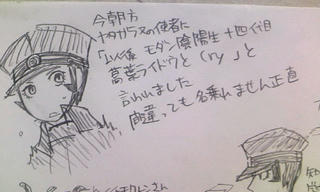 今朝方
ヤタガラスの使者に
「以後 モダン陰陽生 十四代目
葛葉ライドウと(ry 」と
言われました
間違っても名乗れません正直